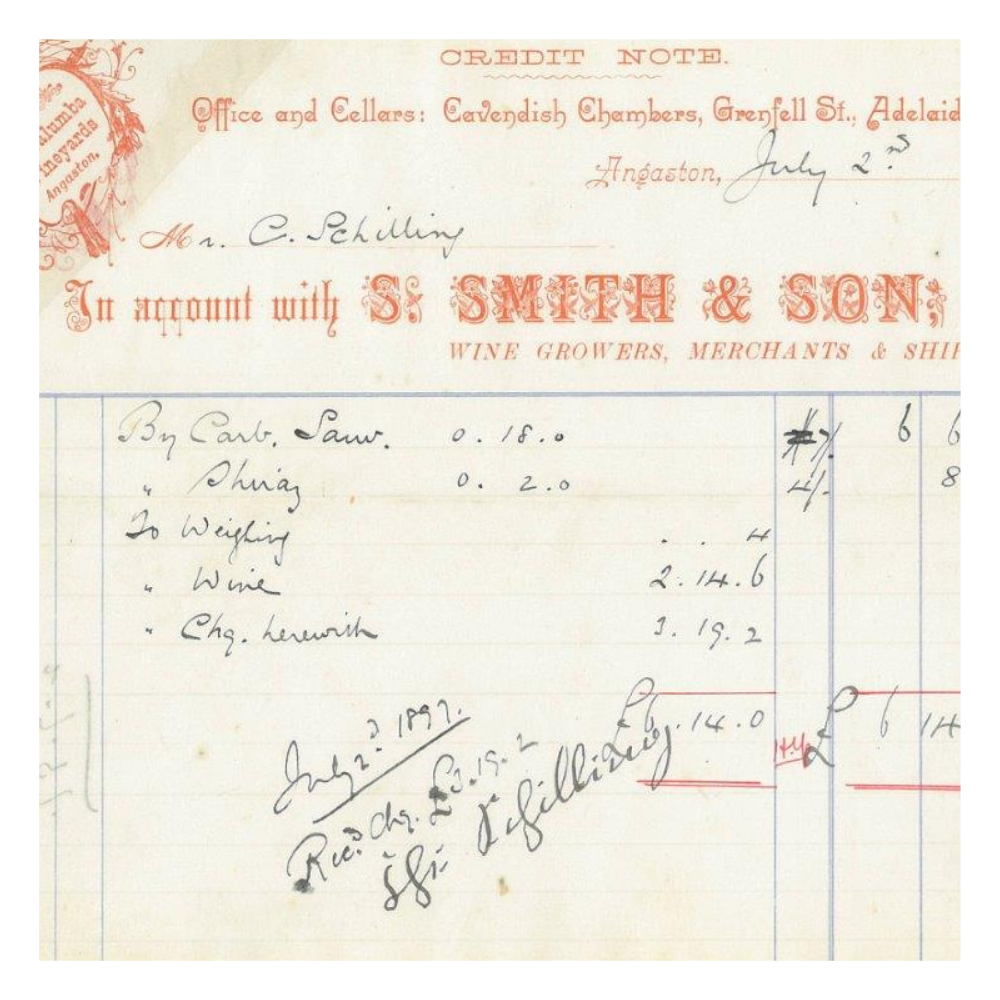 CREDIT NOTE.
Office and Cellars: Cavendish Chambers, Grenfell St., Adelaid
alumba
ineyards
Angaston.
Angaston, July 2nd
Mr. C. Schilling
In account with S. SMITH & SON,
WINE GROWERS, MERCHANTS & SHIP
By Carb. Sauv. 0. 18. 0 7/. 6 6
" Shiraz 0. 2. 0 4/. 8
To Weighing . . 4
" Wine 2. 14. 6
" Chq. herewith 3. 19. 2
£6. 14. 0 £ 6 14
July 2d 1897.
Recd Chq. £3. 19. 2
Schilling